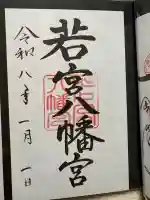 若宮八幡宮
令和八年一月一日